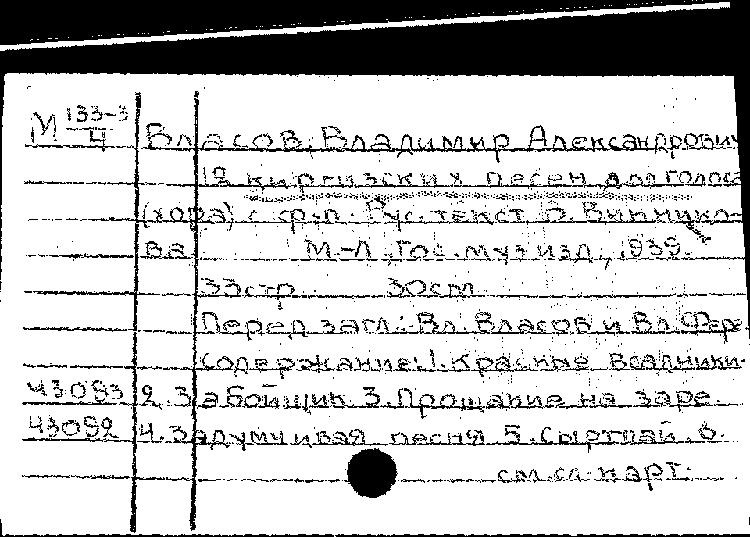 М 133-3/4 Власов, Владимир Александрович
12 киргизских песен для голоса
(хора) с ф-п. Рус. текст В. Виннико-
ва М.-Л., Гос. муз. изд., 1939.
33 стр. 30 cm
Перед загл.: Вл. Власов и Вл. Фере.
Содержание: 1. Красные всадники.
43083 2. Забойщик 3. Прощание на заре.
43092 4. Задумчивая песня 5. Сыртпай. 6.
см. сл. карт.